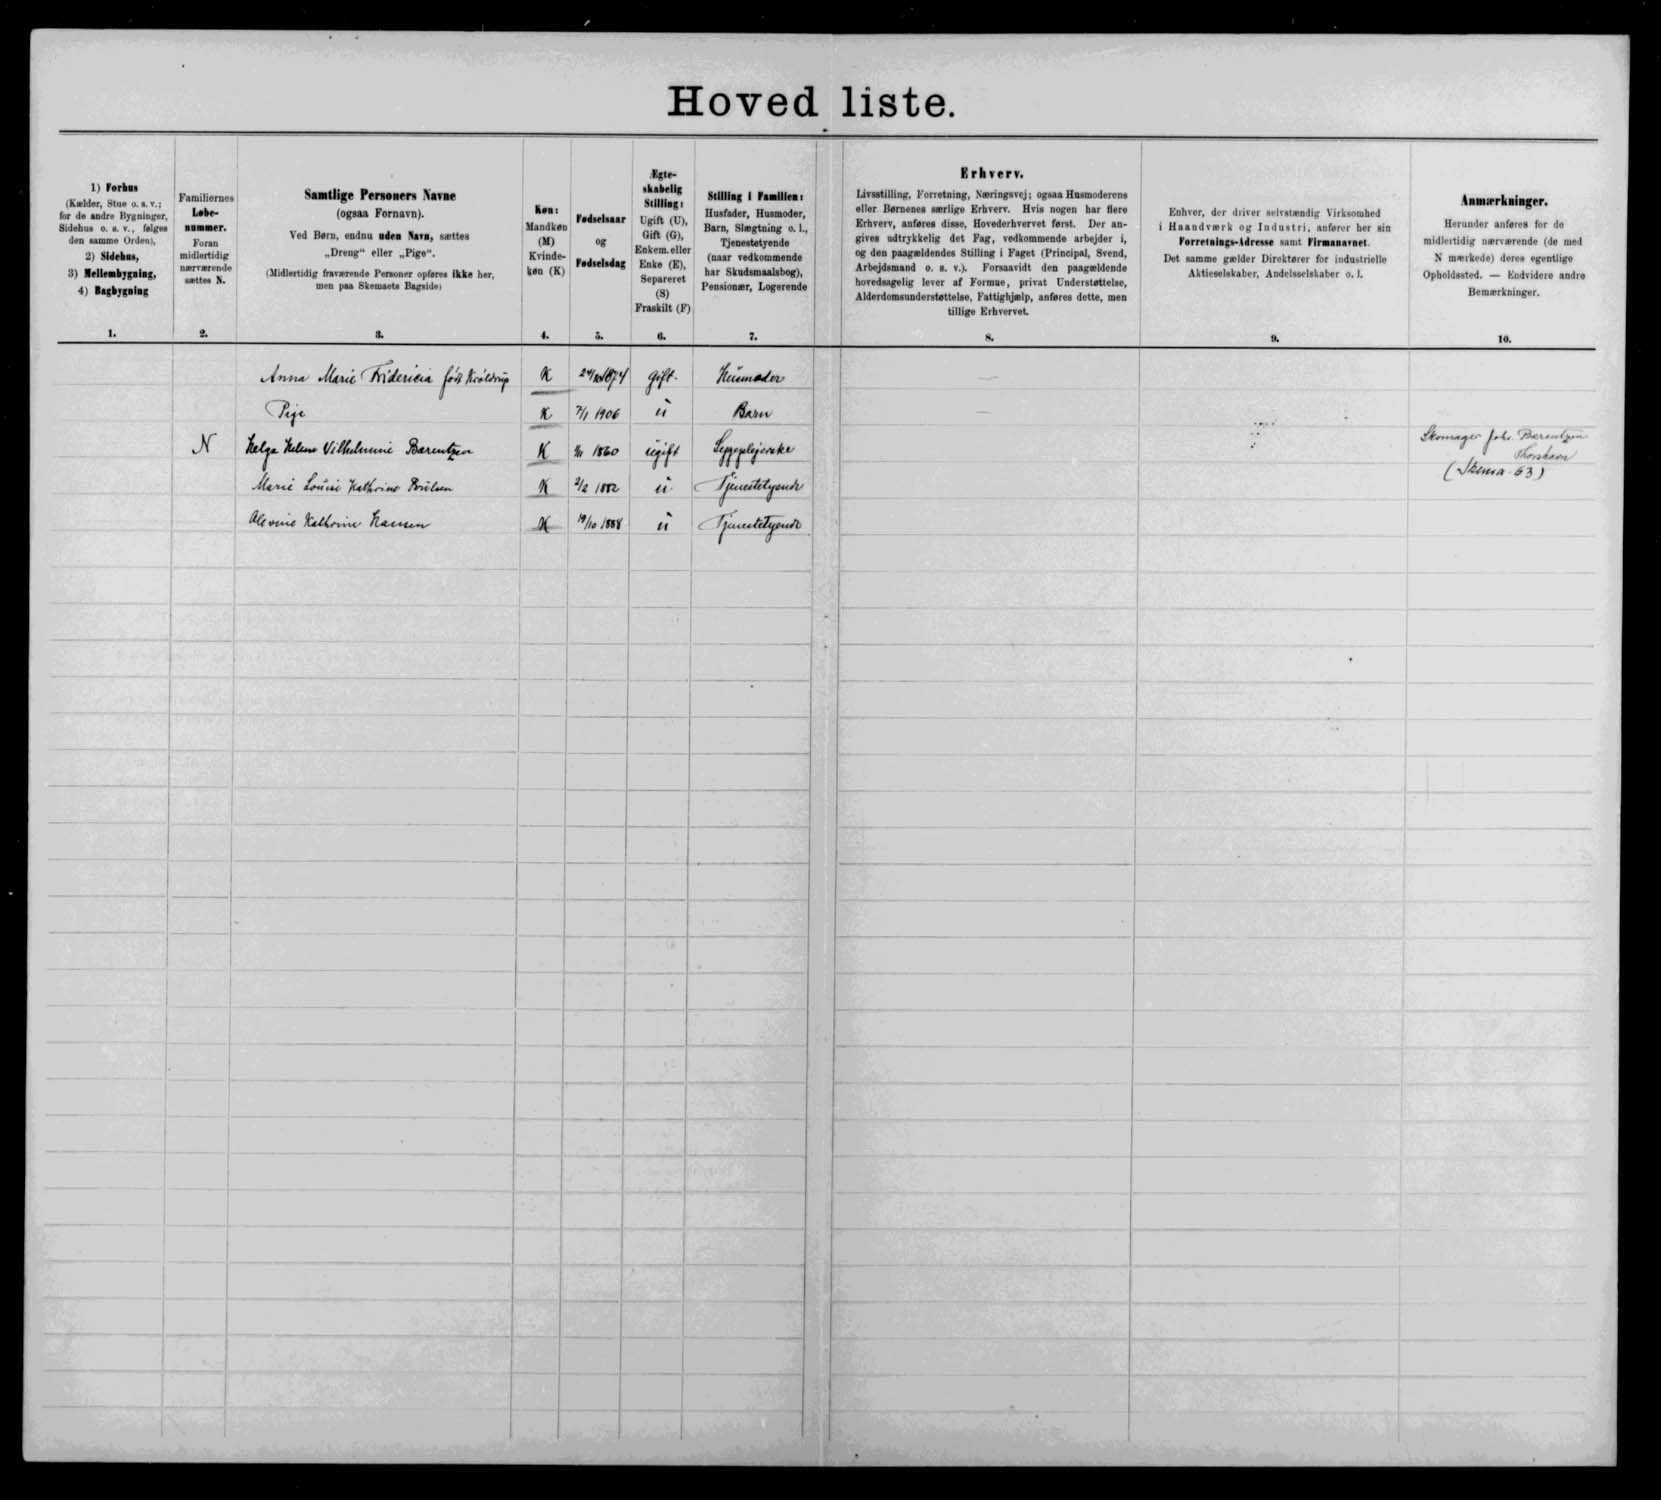 Hoved liste.
1) Forhus
(Kælder, Stue o. s. v.;
for de andre Bygninger,
Sidehus o. s. v., følges
den samme Orden),
2) Sidehus,
3) Mellembygning,
4) Bagbygning
1.
Familiernes
Løbe-
nummer.
Foran
midlertidig
nærværende
sættes N.
2.
Samtlige Personers Navne
(ogsaa Fornavn).
Ved Børn, endnu uden Navn, sættes
„Dreng“ eller „Pige“.
(Midlertidig fraværende Personer opføres ikke her,
men paa Skemaets Bagside)
3.
Køn:
Mandkøn
(M)
Kvinde-
køn (K)
4.
Fødselsaar
og
Fødselsdag
5.
Ægte-
skabelig
Stilling:
Ugift (U),
Gift (G),
Enkem. eller
Enke (E),
Separeret
(S)
Fraskilt (F)
6.
Stilling i Familien:
Husfader, Husmoder,
Barn, Slægtning o. l.,
Tjenestetyende
(naar vedkommende
har Skudsmaalsbog),
Pensionær, Logerende
7.
Erhverv.
Livsstilling, Forretning, Næringsvej; ogsaa Husmoderens
eller Børnenes særlige Erhverv. Hvis nogen har flere
Erhverv, anføres disse, Hovederhvervet først. Der an-
gives udtrykkelig det Fag, vedkommende arbejder i,
og den paagældendes Stilling i Faget (Principal, Svend,
Arbejdsmand o. s. v.). Forsaavidt den paagældende
hovedsagelig lever af Formue, privat Understøttelse,
Alderdomsunderstøttelse, Fattighjælp, anføres dette, men
tillige Erhvervet.
8.
Enhver, der driver selvstændig Virksomhed
i Haandværk og Industri, anfører her sin
Forretnings-Adresse samt Firmanavnet.
Det samme gælder Direktører for industrielle
Aktieselskaber, Andelsselskaber o. l.
9.
Anmærkninger.
Herunder anføres for de
midlertidig nærværende (de med
N mærkede) deres egentlige
Opholdssted. — Endvidere andre
Bemærkninger.
10.
Anna Marie Fridericia født K gift. Husmoder —
Pige K 7/1 1906 u Barn —
N Helga Helene Vilhelmine Barentzen K 1860 ugift Sygeplejerske Skomager Johs. Barentzen
Thorshavn
(Skema 63)
Marie Louise Kathrine K 2/2 1882 u Tjenestetyende
Alevine Kathrine Hansen K 19/10 1888 u Tjenestetyende